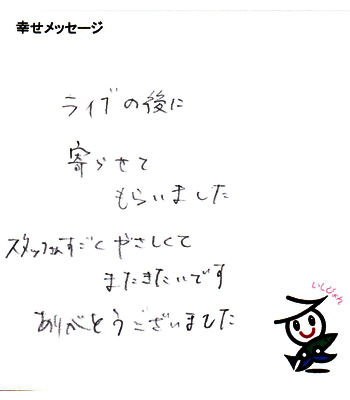 幸せメッセージ
ライブの後に
寄らせて
もらいました
スタッフさんすごくやさしくて
またきたいです
ありがとうございました
いしぴょん